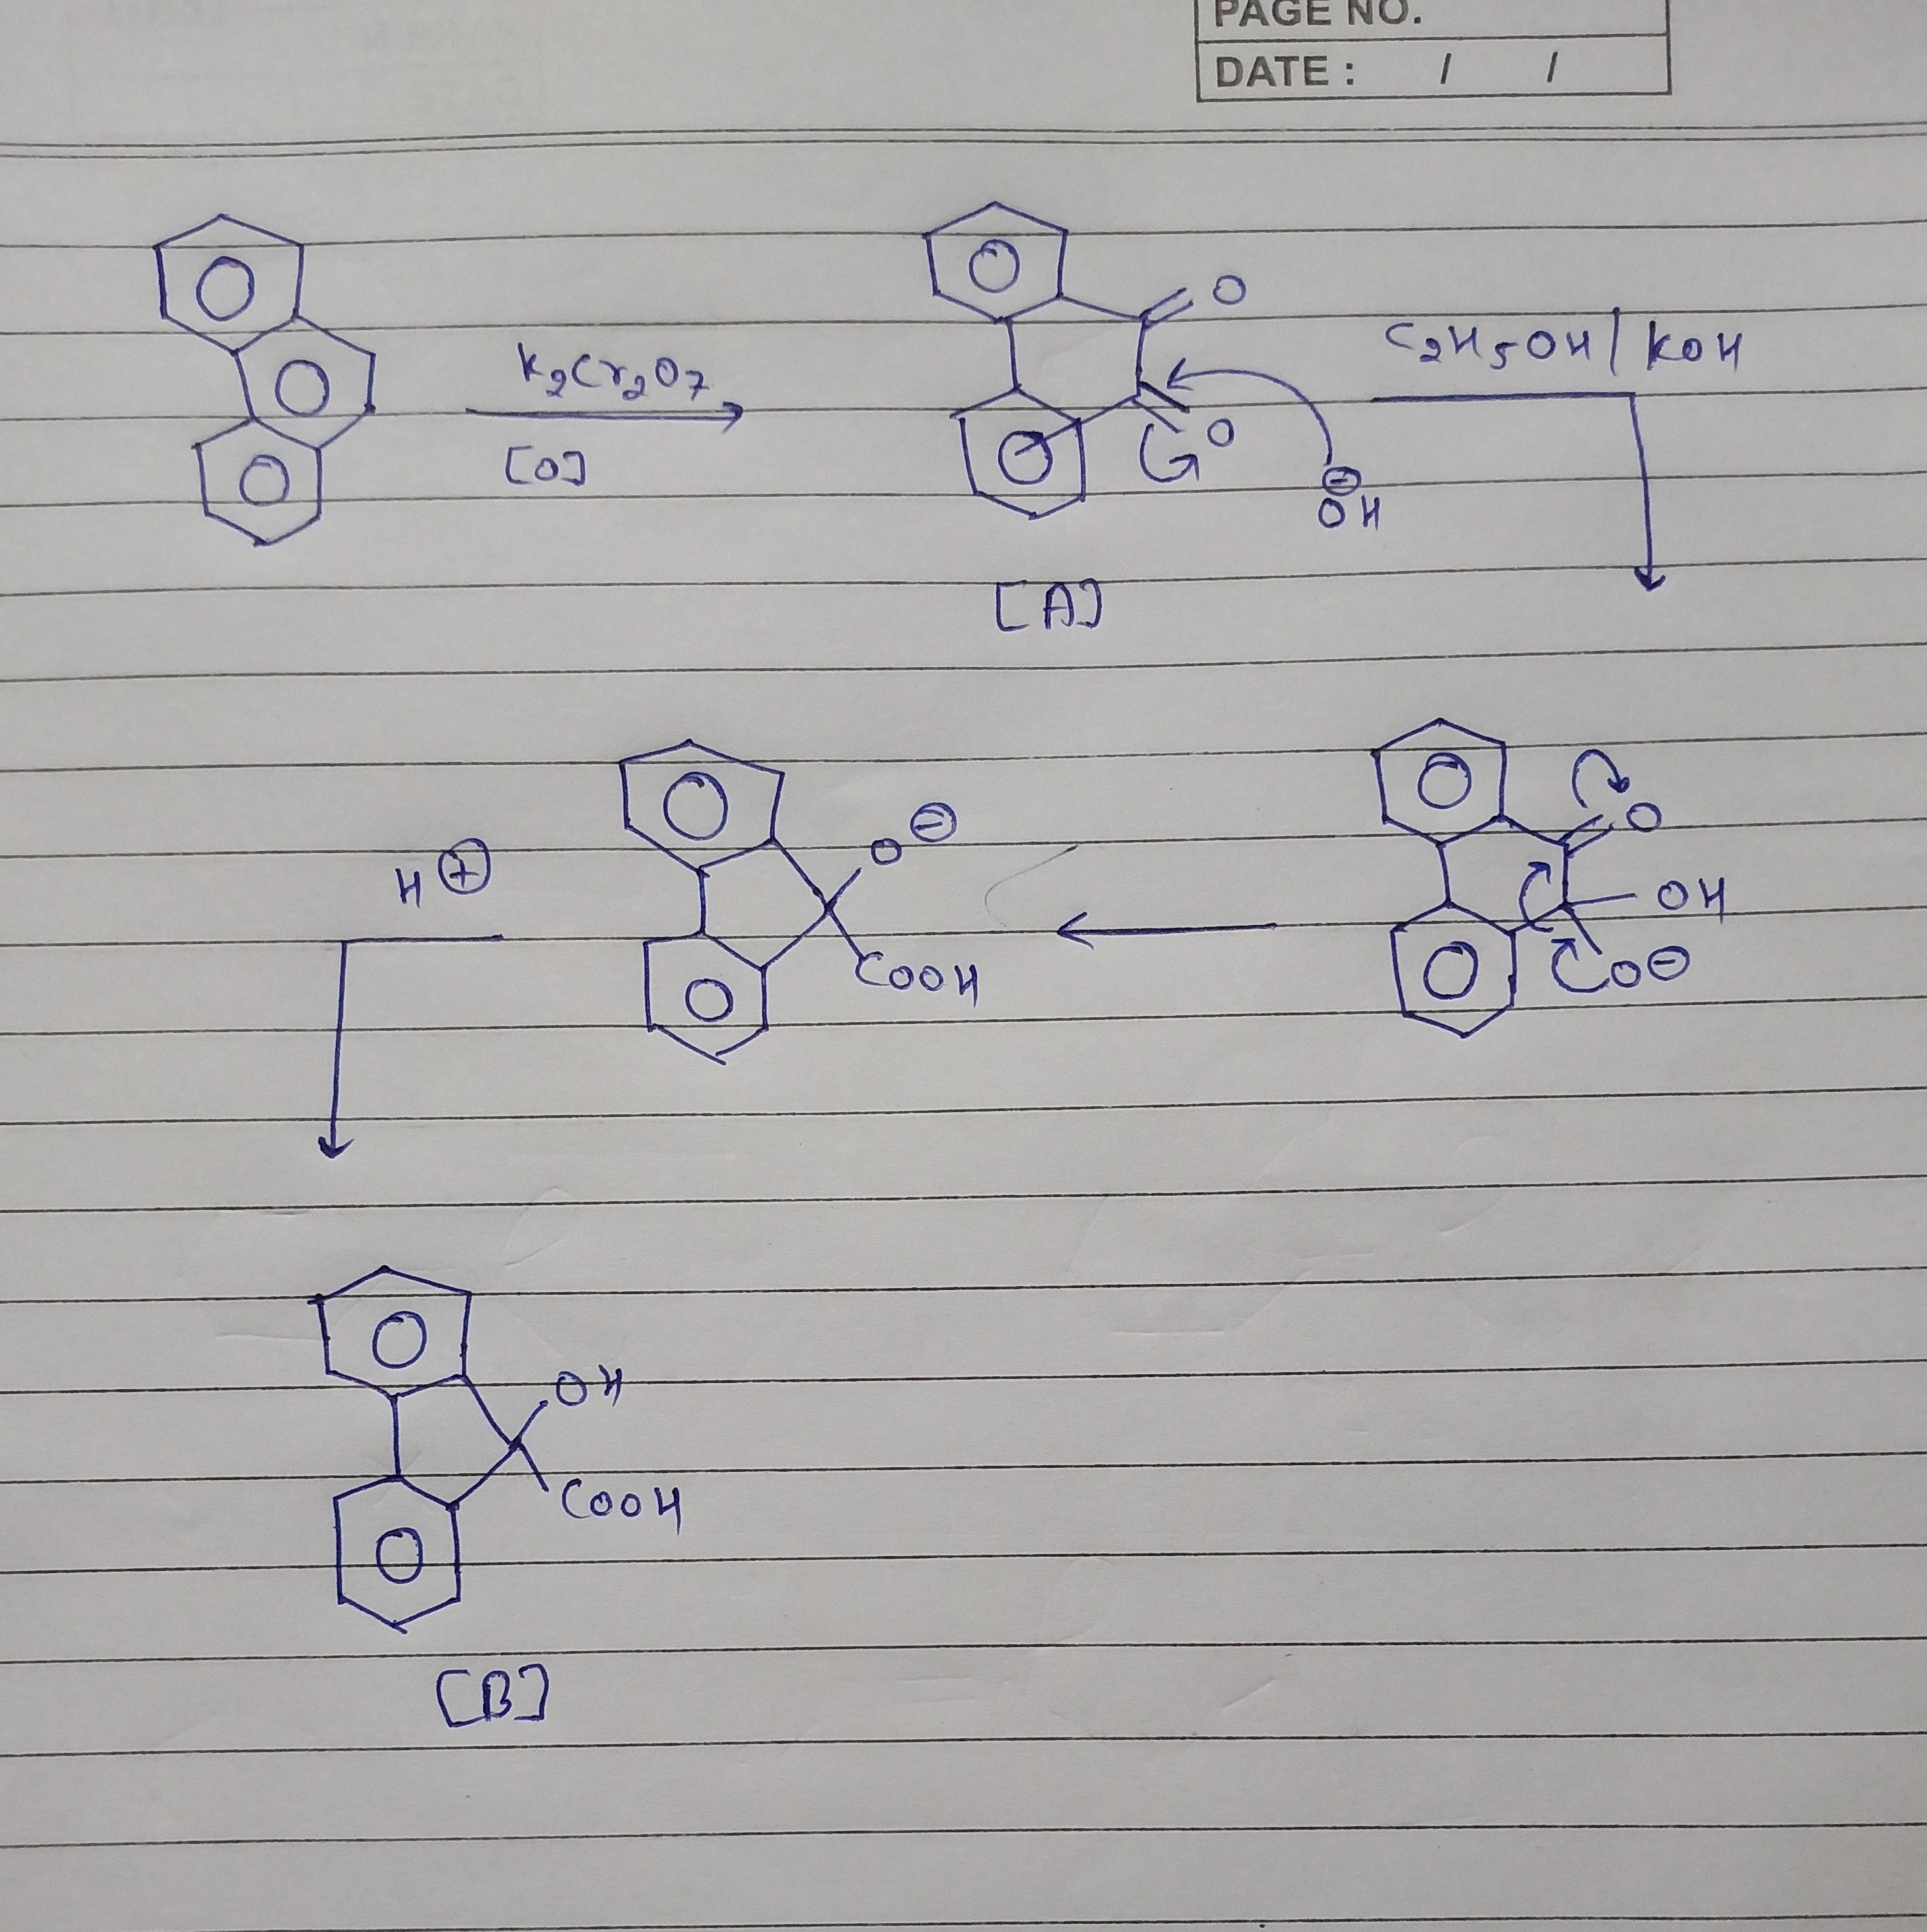 PAGE NO.
DATE : / /
O
K2Cr2O7
[O]
O
⊖
OH
C2H5OH / KOH
[A]
O
OH
O⊖
O⊖
COOH
H⊕
OH
COOH
[B]